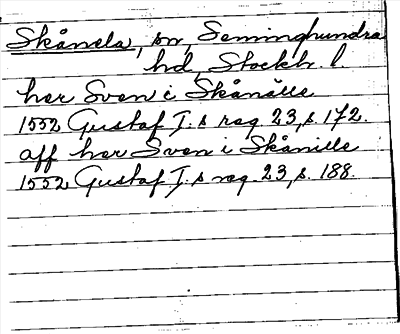 Skånela, sn, Seminghundra
hd, Stockh. l.
her Sven i Skånälle
1552 Gustaf I:s reg. 23, s. 172.
aff her Sven i Skånille
1552 Gustaf I:s reg. 23, s. 188.